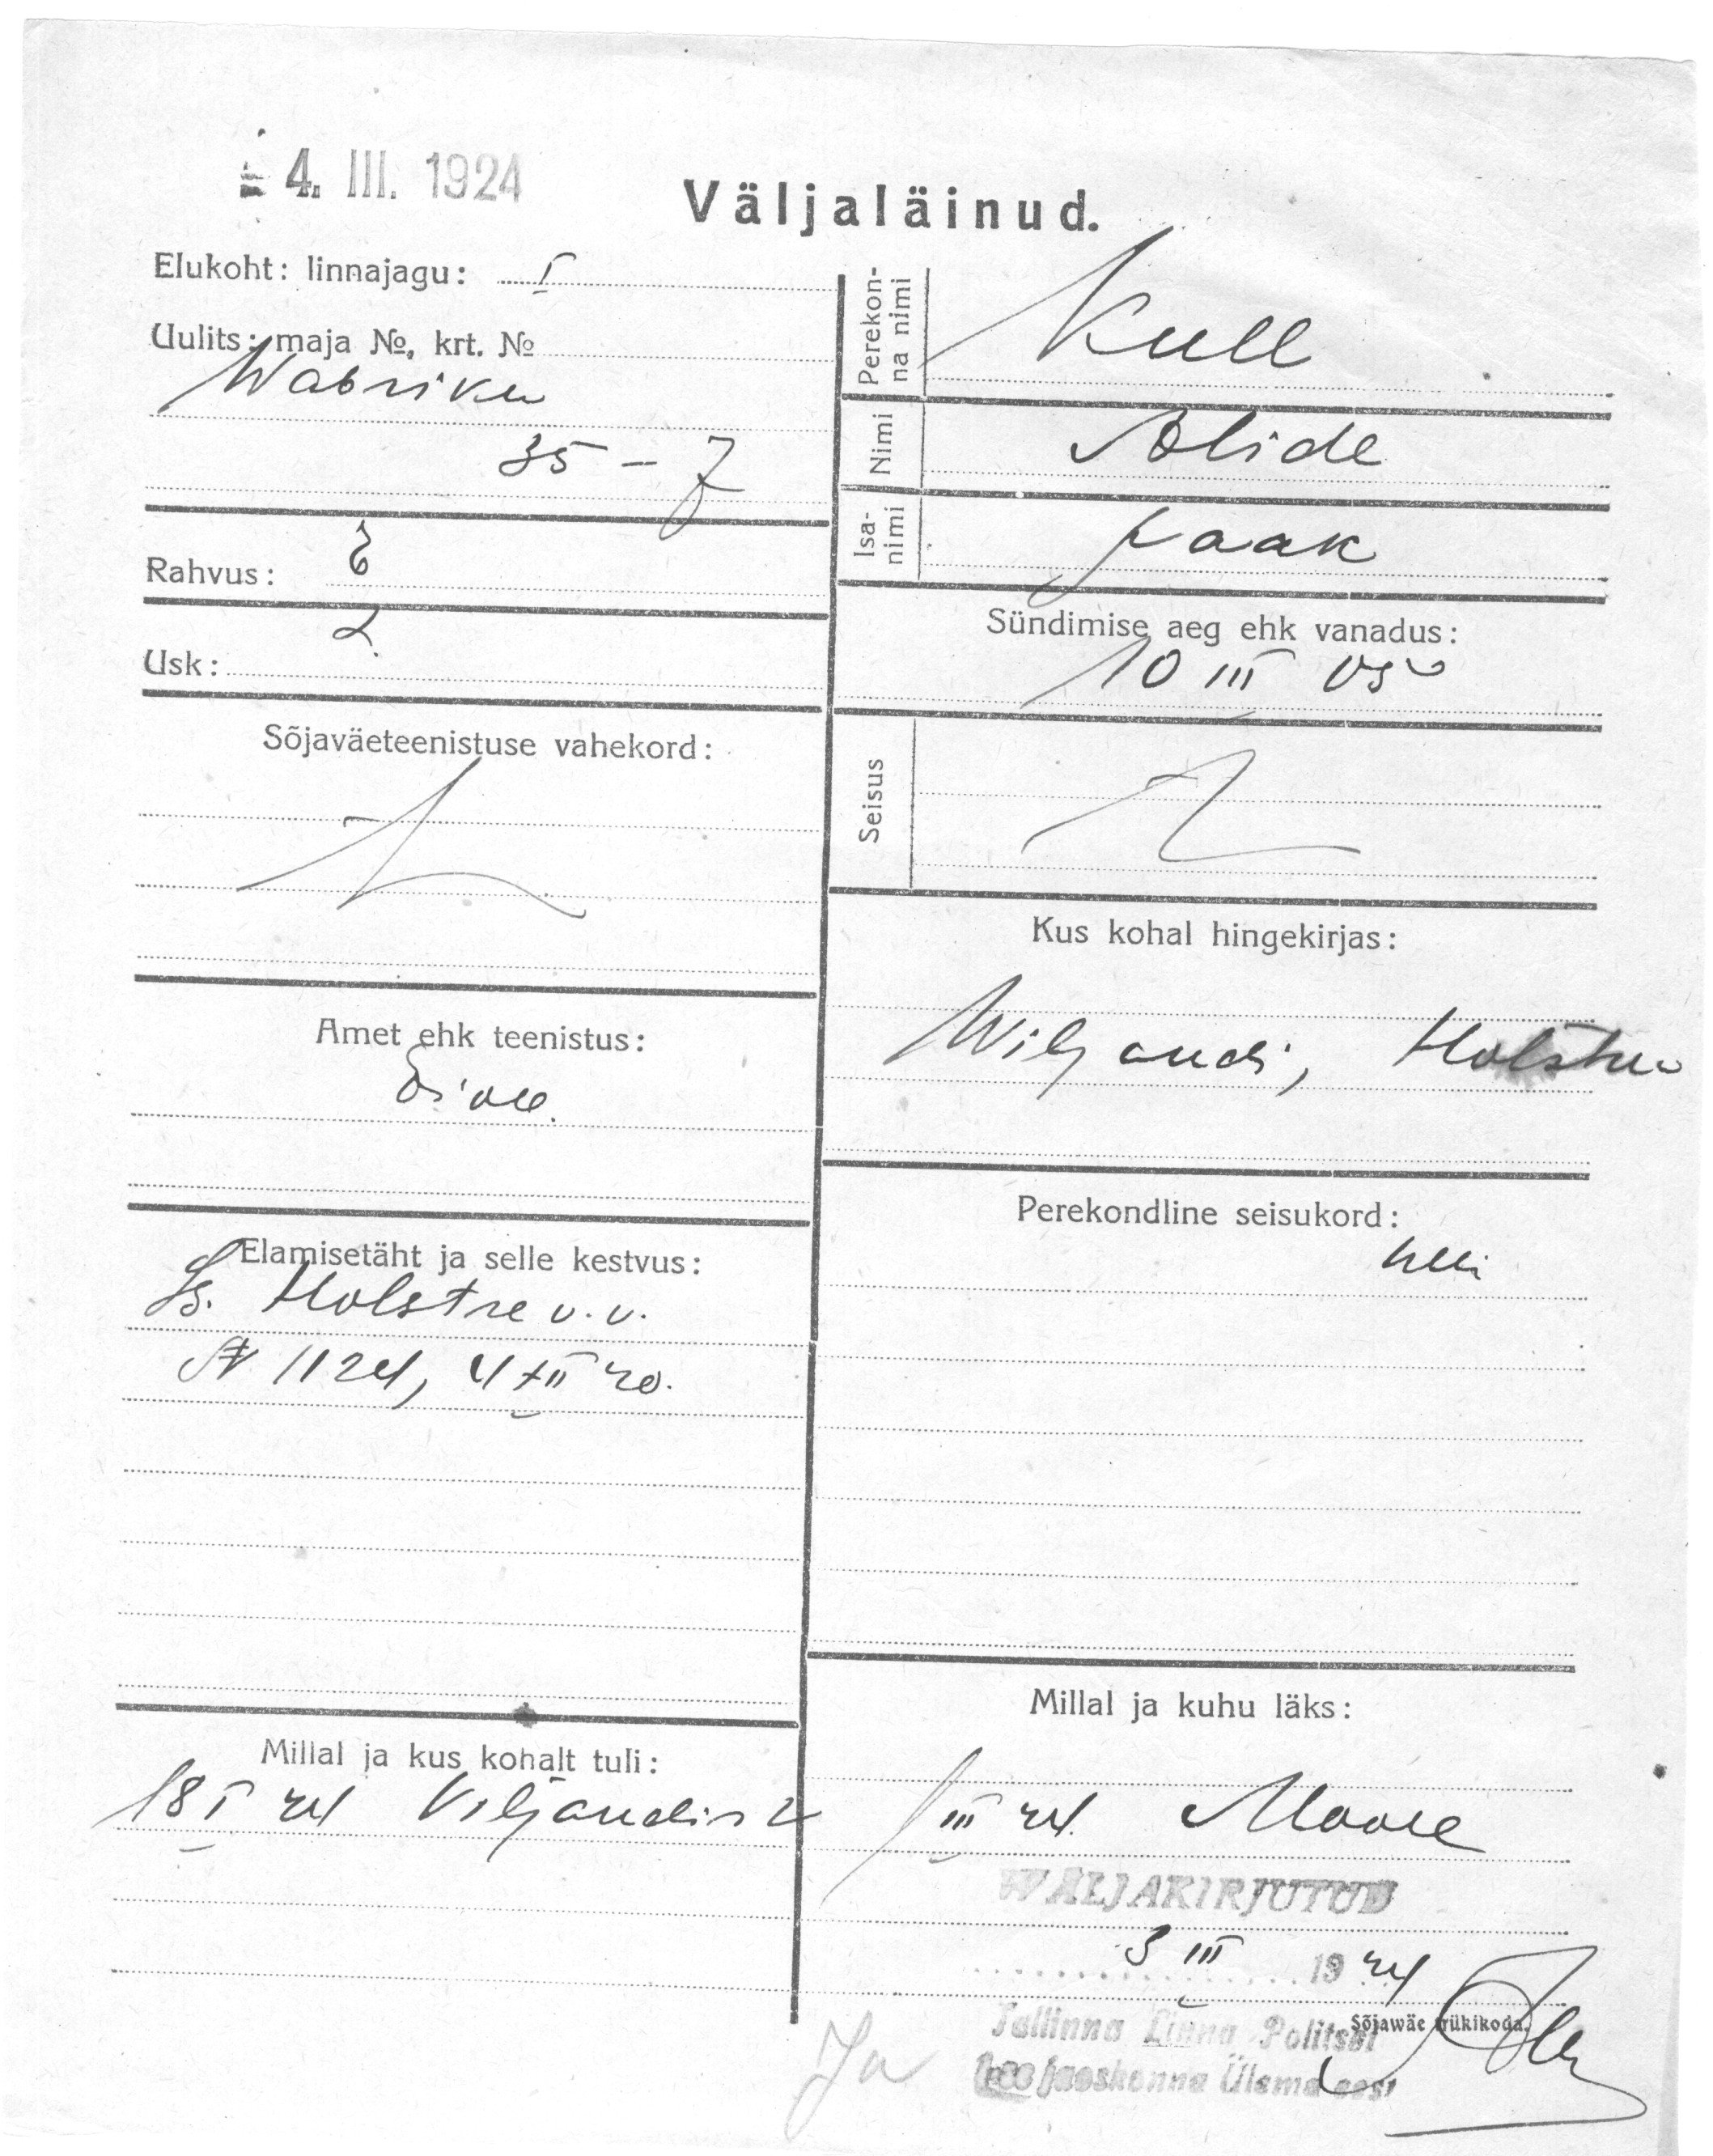 4. III. 1924
Väljaläinud.
Elukoht: linnajagu: I
Uulits: maja №, krt. №
Wabriku
35 – 7
Rahvus: E
Usk: L.
Sõjaväeteenistuse vahekord:
Amet ehk teenistus:
Elamisetäht ja selle kestvus:
Is. Holstre v. v.
№ 1124, 4 XII 20.
Millal ja kus kohalt tuli:
18 I 24 Viljandist
Perekonna nimi
Kull
Nimi
Alide
Isanimi
Jaak
Sündimise aeg ehk vanadus:
10 III 05
Seisus
Kus kohal hingekirjas:
Wiljandi, Holstre
Perekondline seisukord:
Millal ja kuhu läks:
1 III 24. Moore
WÄLJAKIRJUTUD
3 III 1924
Tallinna Linna Politsei
Sõjawäe trükikoda.
jaoskonna Ülema eest
Ja